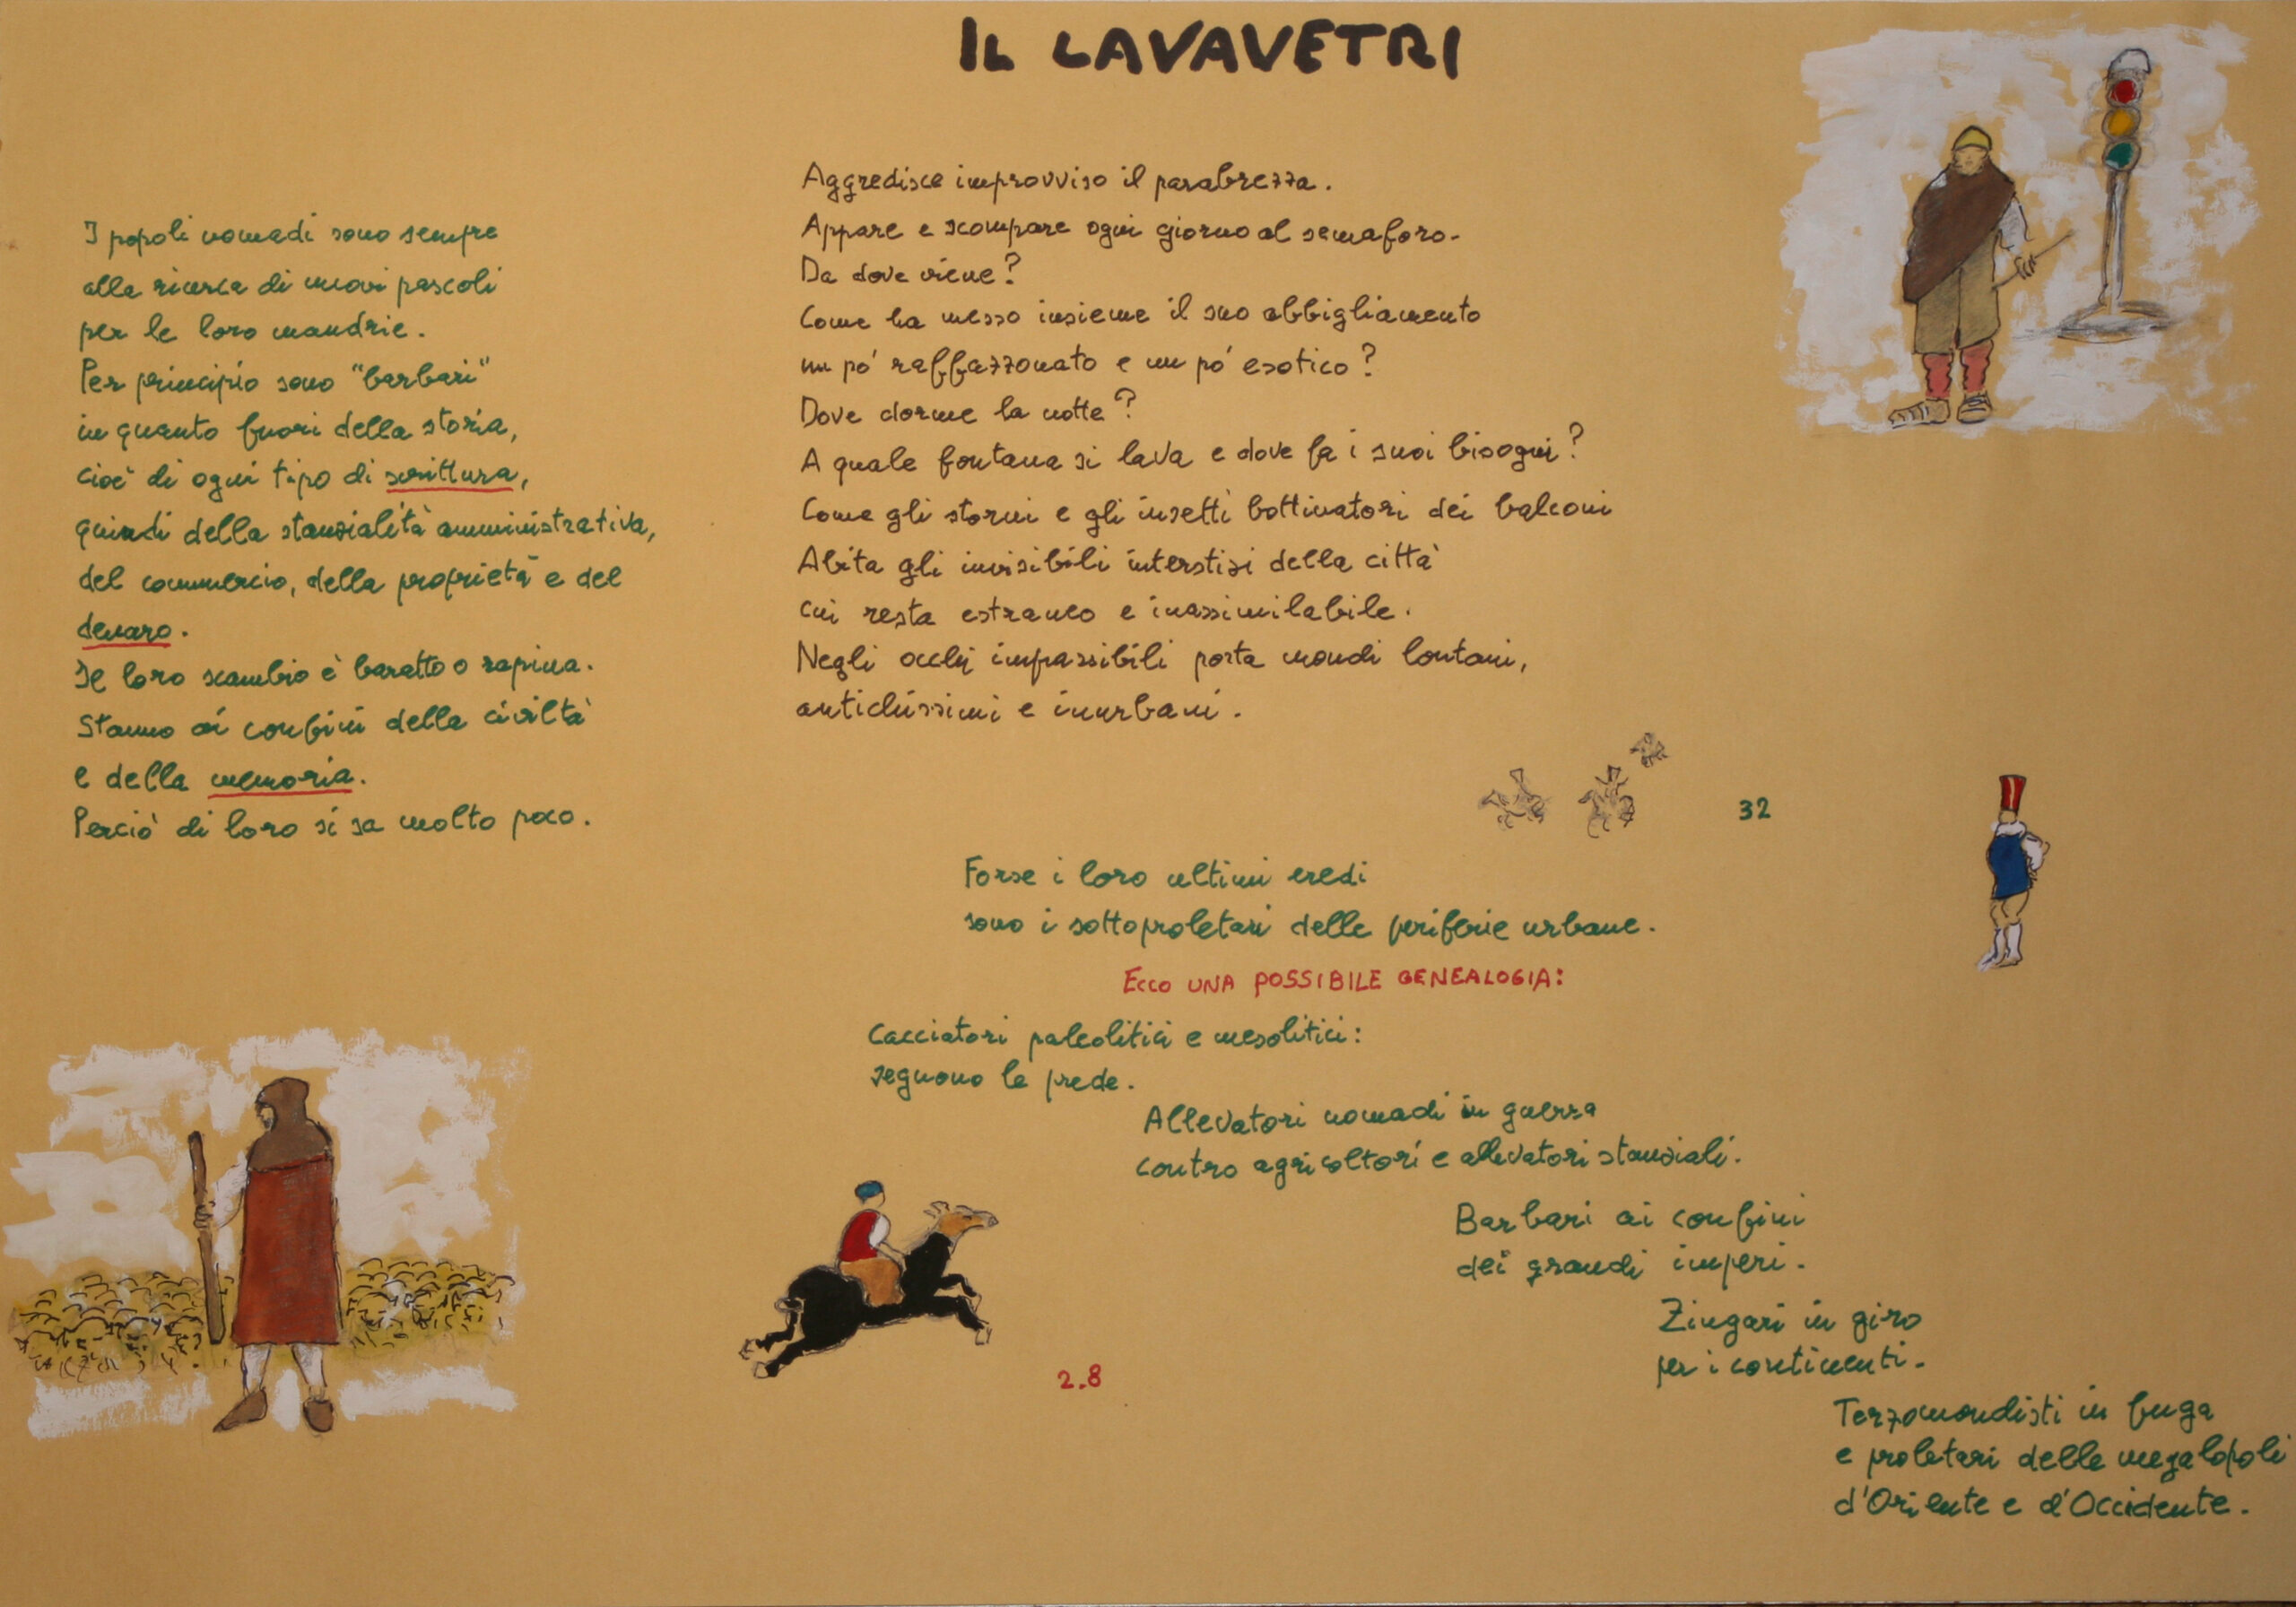 IL LAVAVETRI
I popoli nomadi sono sempre
alla ricerca di nuovi pascoli
per le loro mandrie.
Per principio sono "barbari"
in quanto fuori della storia,
cioè di ogni tipo di scrittura,
quindi della stanzialità amministrativa,
del commercio, della proprietà e del
denaro.
Il loro scambio è baratto o rapina.
Stanno ai confini della civiltà
e della memoria.
Perciò di loro si sa molto poco.
Aggredisce improvviso il parabrezza.
Appare e scompare ogni giorno al semaforo.
Da dove viene?
Come ha messo insieme il suo abbigliamento
un pó raffazzonato e un pó esotico?
Dove dorme la notte?
A quale fontana si lava e dove fa i suoi bisogni?
Come gli storni e gli insetti bottinatori dei balconi
Abita gli invisibili interstizi della città
cui resta estraneo e inassimilabile.
Negli occhi impassibili porta mondi lontani,
antichissimi e inurbani.
32
Forse i loro ultimi eredi
sono i sottoproletari delle periferie urbane.
ECCO UNA POSSIBILE GENEALOGIA:
Cacciatori paleolitici e mesolitici:
seguono le prede.
Allevatori nomadi in guerra
contro agricoltori e allevatori stanziali.
Barbari ai confini
dei grandi imperi.
Zingari in giro
per i continenti.
Terzomondisti in fuga
e proletari delle megalopoli
d'Oriente e d'Occidente.
2.8